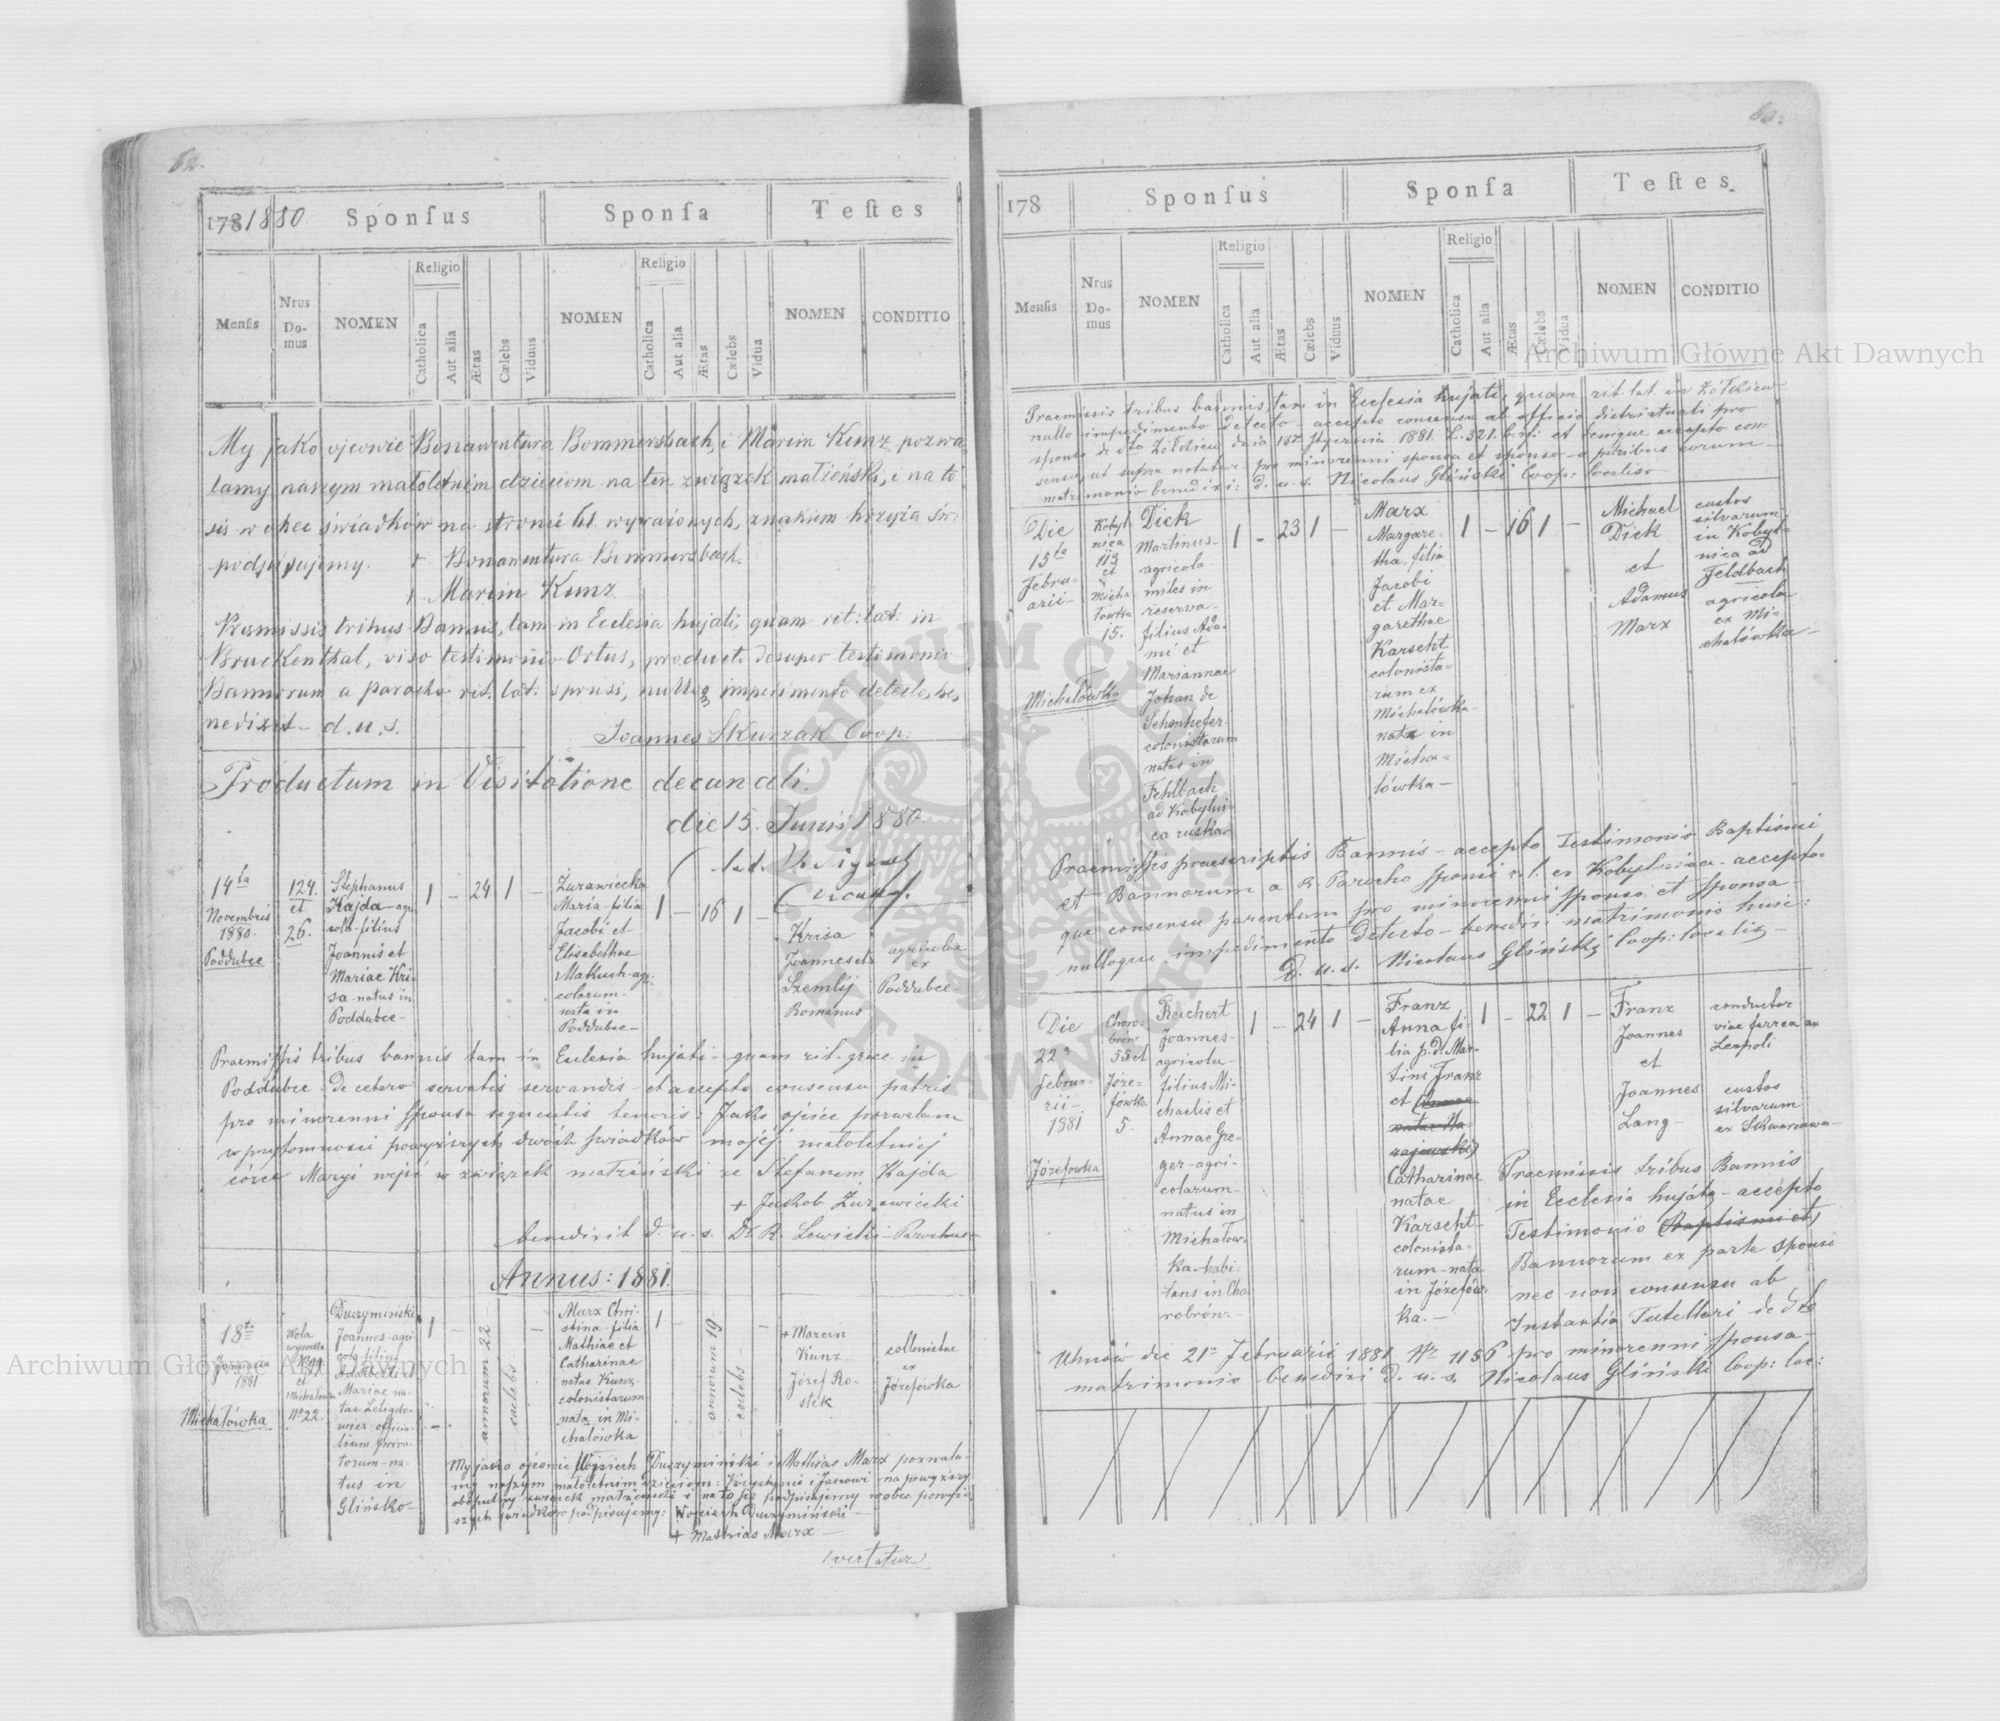 62.
1781880 Sponsus Sponsa Testes
Mensis
Nrus Domus
NOMEN
Religio
Catholica
Aut alia
Ætas
Cælebs
Viduus
NOMEN
Religio
Catholica
Aut alia
Ætas
Cælebs
Vidua
NOMEN
CONDITIO
My jako ojcowie Bonawentura Bommersbach, i Marcin Kunz, pozwa
lamy naszym małoletnim dzieciom na ten związek małżeński, i na to
się wobec świadków na stronie 61. wyrażonych, znakiem krzyża św:
podpisujemy. + Bonawentura Bommersbach.
+ Marcin Kunz
Praemissis tribus Bannis, tam in Ecclesia hujati, quam rit: lat: in
Bruckenthal, viso testimonio Ortus, producto desuper testimonio
Bannorum a parocho rit. lat: sponsi, nulloq impedimento detecto, be,
nedixit – d. u. s.
Joannes Skurzak Coop.
Productum in Visitatione decanali.
die 15. Junii 1880
14ta
Novembris
1880.
Poddubce
124.
et
26.
Stephanus
Kajda – agri
cola – filius
Joannis et
Mariae Kri-
sa – natus in
Poddubce –
1 – 24 1 –
Zurawiecka
Maria – filia
Jacobi et
Elisabethae
Matkuch – agri-
colarum –
nata in
Poddubce –
1 – 16 1 –
Krisa
Joannes et
Szemlij
Romanus
agricolae
ex
Poddubce –
Praemissis tribus bannis tam in Ecclesia hujati – quam rit. graec. in
Poddubce – de cetero servatis servandis – et accepto consensu patris
pro minorenni sponsa sequentis tenoris: Jako ojciec pozwalam
w przytomności powyższych dwóch świadków mojej małoletniej
córce Maryi wejść w związek małżeński ze Stefanem Kajda
+ Jakob Zurawiecki
benedixit d. u. s. Dr R. Lewicki – Parochus –
Annus: 1881.
18ta
Januarii
1881
Michałówka
Wola
wysocka
N. 99.
et
Michałówka
No 22.
Duczymiński
Joannes – agri
cola – filius
Adalberti et
Mariae na-
tae Letigdo-
wicz – officia-
lium priva-
torum – na-
tus in
Glińsko –
1 –
annorum 22 –
caelebs –
–
Marx Chri-
stina – filia
Mathiae et
Catharinae
natae Kunz
colonistarum –
nata in Mi-
chałówka
1 –
annorum 19
– caelebs –
–
+ Marcin
Kunz –
Józef Ro-
stek
collonistae
ex
Józefówka
My jako ojcowie Wojciech Duczymiński i Mathias Marx pozwala-
my naszym małoletnim dzieciom: Krystynie i Janowi na powyższy
obopulny związek małżeński i na to się podpisujemy wobec powyż-
szych świadków podpisujemy: Wojciech Duczymiński –
+ Mathias Marx –
(vertatur)
178 Sponsus Sponsa Testes
Mensis
Nrus Domus
NOMEN
Religio
Catholica
Aut alia
Ætas
Cælebs
Viduus
NOMEN
Religio
Catholica
Aut alia
Ætas
Cælebs
Vidua
NOMEN
CONDITIO
Praemissis tribus bannis, tam in Ecclesia hujati, quam rit. lat. in Żółkiew
nullo impedimento detecto – accepto consensu ab officio districtuali pro
sponso de dto Żółkiew dnia 18go Stycznia 1881. L. 321. et denique accepto con-
sensu, ut supra notatur – pro minorenni sponsa et sponso – a patribus eorum –
matrimonio benedixi: d. u. s. Nicolaus Gliński Coop: localis –
Die
15ta
Febru-
arii –
Michałówka
Kobyl
nica
113
et
Micha
łówka
15.
Dick
Martinus –
agricola
miles in
reserva –
filius Ada-
mi et
Mariannae
Johan de
Schenhefer
colonistarum
natus in
Fehlbach
ad Kobylni-
ca ruska
1 – 23 1 –
Marx
Margare-
tha, filia
Jacobi
et Mar-
garethae
Karscht
colonista-
rum ex
Michałówka –
nata in
Micha-
łówka –
1 – 16 1 –
Michael
Dick
et
Adamus
Marx
custos
silvarum
in Kobyl-
nica ad
Feldbach
agricola
ex Mi-
chałówka –
Praemissis praescriptis Bannis – accepto Testimonio Baptismi
et Bannorum a R. Parocho sponsi r. l. ex Kobylnica – accepto-
que consensu parentum pro minorenni sponso et sponsa –
nulloque impedimento detecto – benedixi matrimonio huic:
D. u. s. Nicolaus Gliński Coop: localis –
Die
22a
Februa-
rii –
1881
Józefówka
Choro-
brów
55 et
Józe-
fówka
5.
Reichert
Joannes –
agricola –
filius Mi-
chaelis et
Annae Gre-
ger – agri-
colarum –
natus in
Michałów-
ka habi-
tans in Cho
robrów. –
1 – 24 1 –
Franz
Anna fi-
lia p. d. Mar-
tini Franz
et
Catharinae
natae
Karscht –
colonista-
rum – nata
in Józefów-
ka. –
1 – 22 1 –
Franz
Joannes
et
Joannes
Lang –
conductor
viae ferreae ex
Leopoli
custos
silvarum
ex Skwarzawa –
Praemissis tribus Bannis
in Ecclesia hujate – accepto
Testimonio (Baptismi et)
Bannorum ex parte sponsi
nec non consensu ab
Instantia Tutellari de dto
Uhnów die 21a Februarii 1881 Nr 1156 pro minorenni sponsa –
matrimonio benedixi D. u. s. Nicolaus Gliński Coop: loc:
Archiwum Główne Akt Dawnych
Archiwum Główne Akt Dawnych
ARCHIWUM GŁÓWNE AKT DAWNYCH